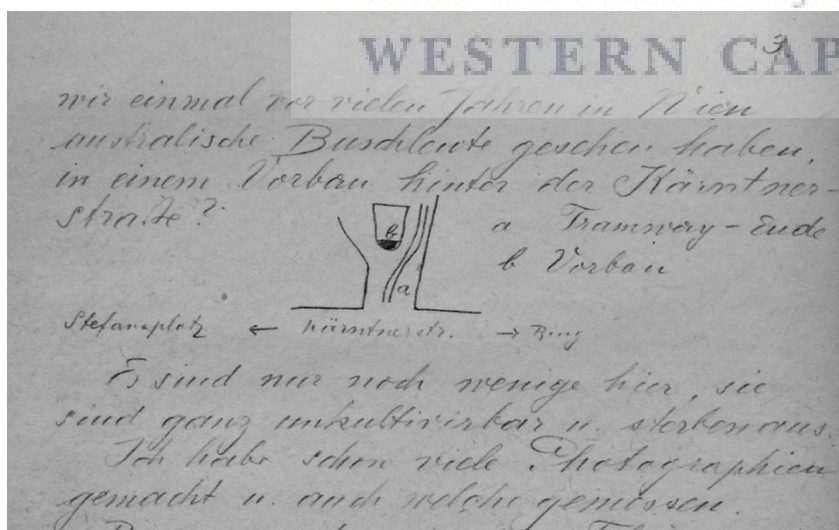 WESTERN CAP
3
wir einmal vor vielen Jahren in Wien
australische Buschleute gesehen haben,
in einem Vorbau hinter der Kärntner-
straße?
a Tramway-Ende
b Vorbau
b
a
Stefansplatz ← Kärntnerstr. → Ring
Es sind nur noch wenige hier, sie
sind ganz unkultivirbar u. sterben aus.
Ich habe schon viele Photographien
gemacht u. auch welche gemessen.